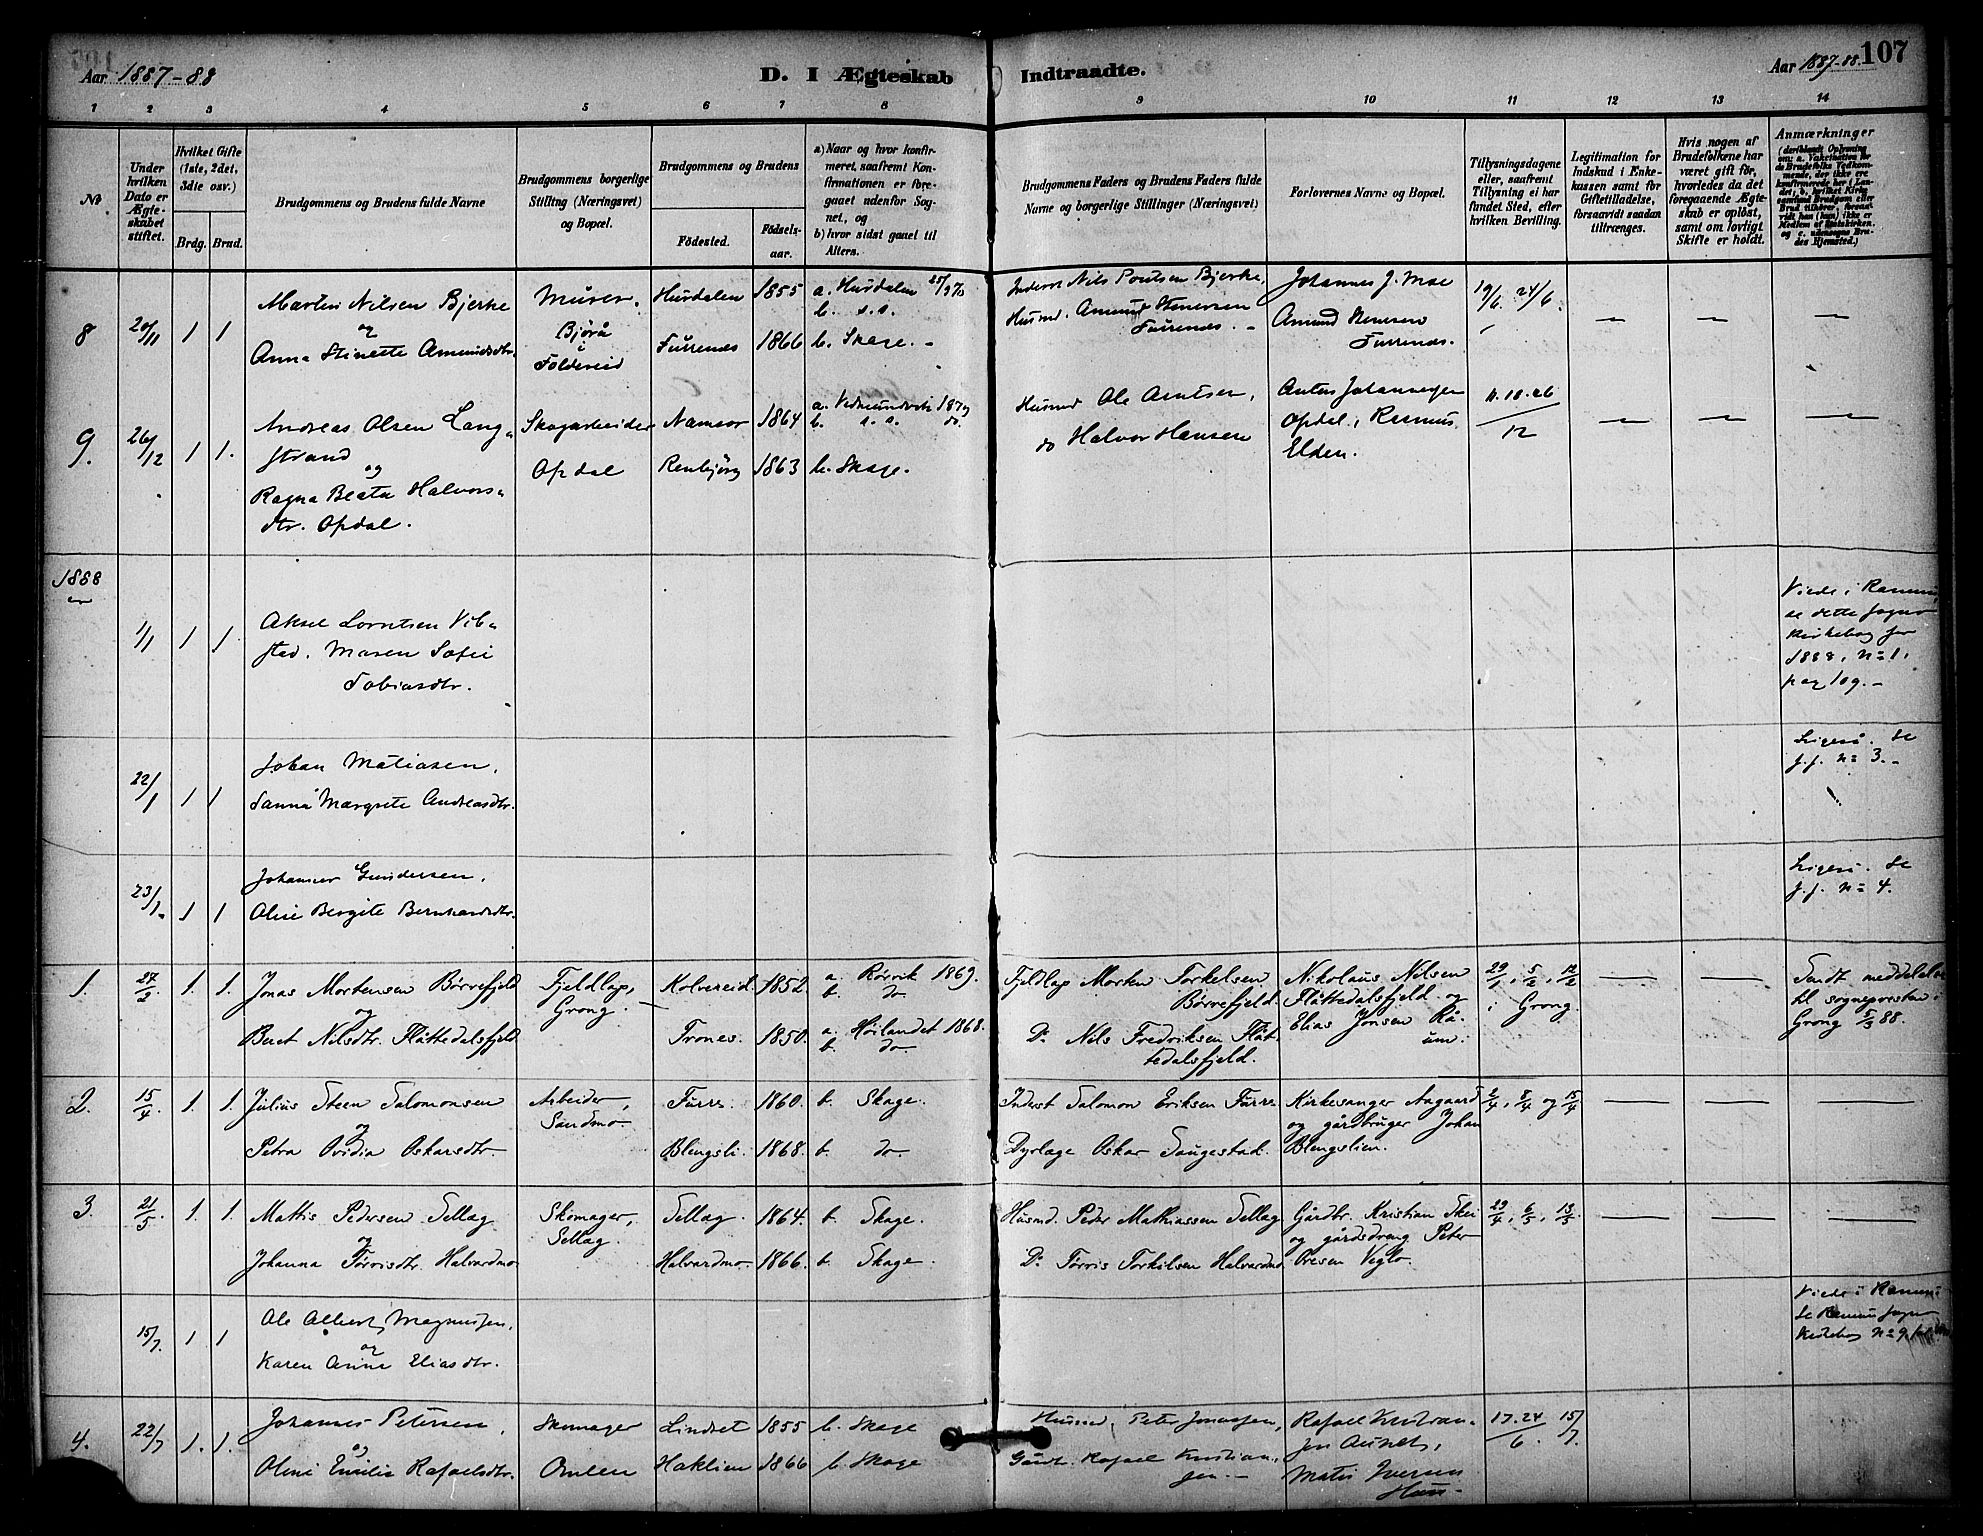 Aar 1887-88
D. I Ægteskab Indtraadte.
Aar 1887-88. 107
1 2 3 4 5 6 7 8 9 10 11 12 13 14
No
Under hvilken Dato er Ægteskabet stiftet.
Hvilket Gifte (1ste, 2det, 3die osv.)
Brdg. Brud.
Brudgommens og Brudens fulde Navne
Brudgommens borgerlige Stilling (Næringsvei) og Bopæl.
Brudgommens og Brudens
Födested. Födselsaar.
a) Naar og hvor konfirmeret, saafremt Konfirmationen er foregaaet udenfor Sognet, og
b) hvor sidst gaaet til Alters.
Brudgommens Faders og Brudens Faders fulde Navne og borgerlige Stillinger (Næringsvei)
Forlovernes Navne og Bopæl.
Tillysningsdagene eller, saafremt Tillysning ei har fundet Sted, efter hvilken Bevilling.
Legitimation for Indskud i Enkekassen samt for Giftetilladelse, forsaavidt saadan tiltrænges.
Hvis nogen af Brudefolkene har været gift før, hvorledes da det foregaaende Ægteskab er oplöst, samt om lovligt Skifte er holdt.
Anmærkninger
8 20/11 1 1 Martin Nilsen Bjerke Murer. Husdalen 1855 a. Husdalen b. s.s. Inderst Nils Poulsen Bjerke, Johannes J. Moe 19/6. 24/6. — — —
og Bjørå i Foldereid
Anna Stinette Amundsdtr. Furrenes 1866 b. Skage. - Husmd. Amund Stenersen Furrenes. - Amund Stenersen Furrenes.
9. 26/12 1 1. Andreas Olsen Langstrand Skogarbeider Namsos 1864 a. Vedmundvik 1879 b. s.s. do. Husmd Ole Arntsen, Anton Johannesen Opdal, Rasmus Elden. 11.18.26/12 — — —
og
Ragna Beata Halvorsdtr. Opdal. Opdal 1863 b. Skage. do Halvor Hansen
1888
1/1 1 1 Aksel Lorntsen Vibstad. Maren Sofie Tobiasdtr. Viede i Ranem, se dette sogns kirkebog for 1888, n=1, pag 109. -
22/1 1 1 Johan Matiasen. Sanna Margrete Andreasdtr. Ligeså. Se J.J. n=3. -
23/1. 1 1 Johannes Gundersen. Oline Bergite Bernhardsdtr. Ligeså. Se J.J. n=4.
1. 27/2. 1. 1. Jonas Mortensen Börrefjeld Fjeldlap, Grong. Kolvereid. 1852. a. Rørvik 1869. b. do Fjeldlap Morten Torkelsen Börrefjeld. Nikolaus Nilsen Flåttedalsfjeld og Elias Jonsen Råum. 29/1, 5/2, 12/2 i Grong. — — Sendt meddelelse til sognepresten i Grong 5/3 88.
og
Beret Nilsdtr. Flåttedalsfjeld Trones. 1850. a. Høilandet 1868. b. do. Do Nils Fredriksen Flåttedalsfjeld.
2. 15/4. 1. 1. Julius Steen Salomonsen Arbeider, Sandmo Furre. 1860. b. Skage. Inderst Salomon Eriksen Furre Kirkesanger Aagaard og gårdbruger Johan Blengslien. 2/4, 8/4 og 15/4 — — —
og
Petra Ovidia Oskarsdtr Blengsli. 1868. b. do. Dyrlæge Oskar Saugestad.
3. 21/5. 1. 1. Mattis Pedersen Sellæg Skomager, Sellæg. Sellæg. 1864. b. Skage. Husmd. Peder Mathiassen Sellæg Gårdbr. Kristian Skei og gårdsdreng Peter Oresen Veglo. 29/4, 6/5, 13/5. — — —
og
Johanna Torrisdtr. Halvardmo Halvardmo. 1866. b. Skage. Do Torris Torkilsen Halvardmo
15/7. 1 1 Ole Albert Magnussen. Viede i Ranem. Se Ranem sogns kirkebog n=9
og
Karen Anna Eliasdtr.
4. 22/7 1. 1. Johannes Petersen, Skomager Lindset 1855 b. Skage Husmd. Peter Jonassen, Rafael Kristiansen Aunet, 17.24/6. 15/7.
og
Oline Emilie Rafaelsdtr. Omlen Haklien 1866 b. Skage Gårdbr. Rafael Kristiansen. - Matis Iversen